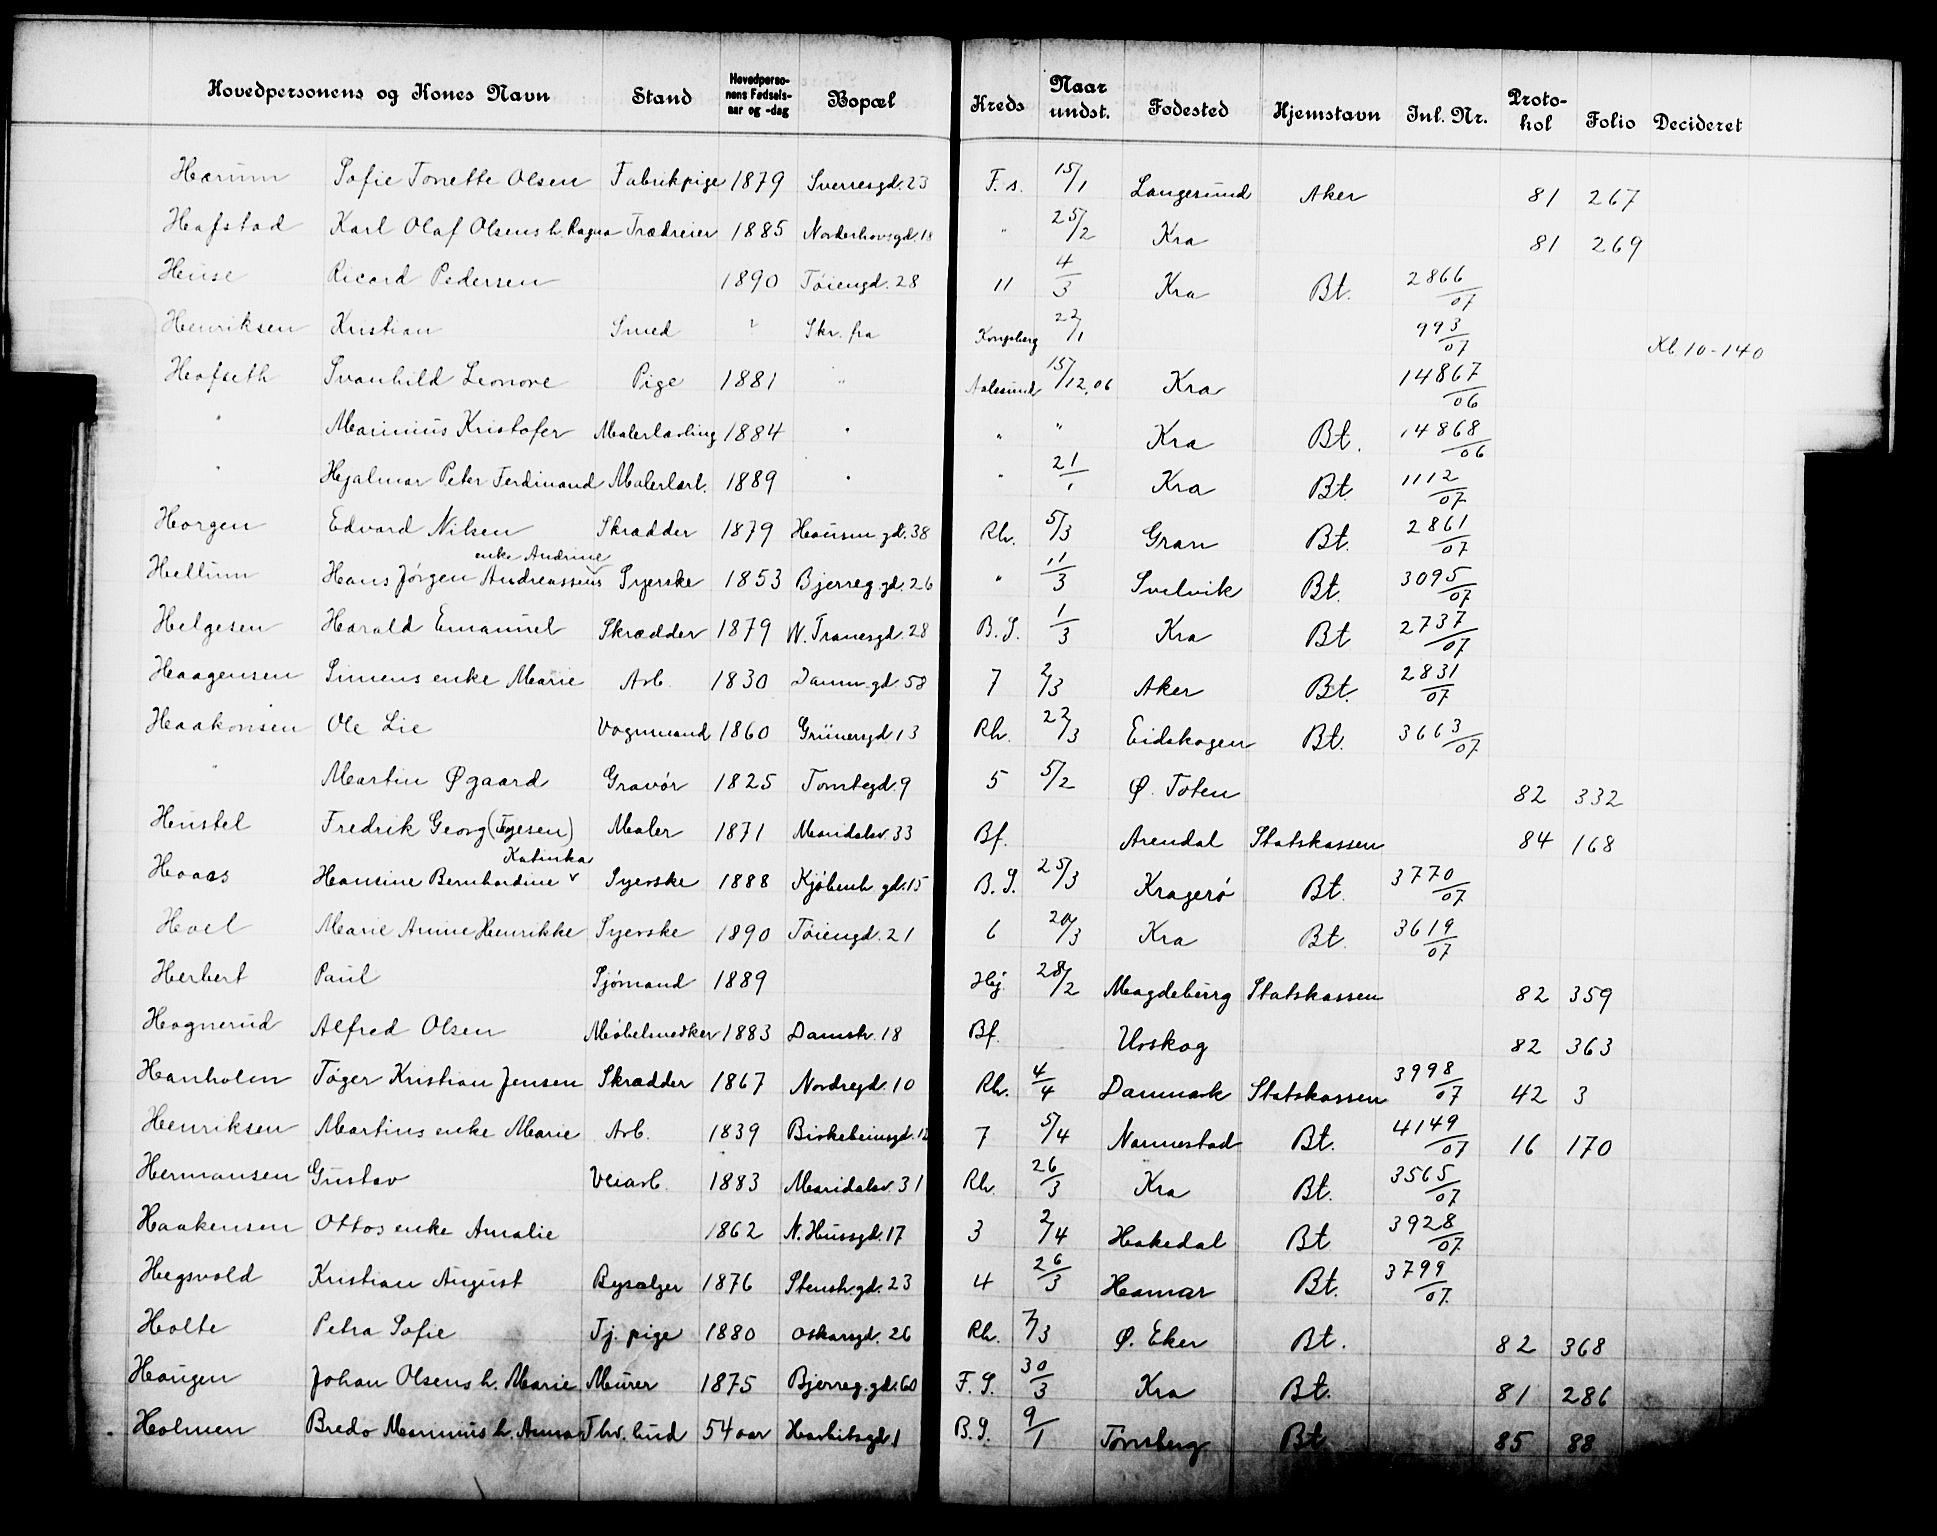 Hovedpersonens og Kones Navn Stand Hovedpersonens Fødsels-aar og -dag Bopæl Kreds Naar undst. Fødested Hjemstavn Inl. Nr. Protokol Folio Decideret
Hærum Sofie Tonette Olsen Fabrikpige 1879 Sverresgd. 23 F. s. 15/1 Langesund Aker 81 267
Hafstad Karl Olaf Olsens h. Ragna Trædreier 1885 Norderhovsgd. 18 " 25/2 Kra 81 269
Huse Ricard Pedersen 1890 Tøiengd. 28 11 4/3 Kra Bt. 2866/07
Henriksen Kristian Smed ? Skr. fra Kongsberg 22/1 993/07 Kl 10-140
Hafseth Svanhild Leonore Pige 1881 " Aalesund 15/12.06 Kra 14867/06
" Marinius Kristofer Malerlærling 1884 " " " Kra Bt. 14868/06
" Hjalmar Peter Ferdinand Malerlærl. 1889 " " 21/1 Kra Bt. 1112/07
Horgen Edvard Nilsen Skrædder 1879 Hausm gd. 38 Rh. 5/3 Gran Bt. 2861/07
Hellum Hans Jørgen Andreassens enke Andrine Syerske 1853 Bjerreg. gd. 26 " 11/3 Svelvik Bt. 3095/07
Helgesen Harald Emanuel Skrædder 1879 W. Tranesgd. 28 B. S. 1/3 Kra Bt 2737/07
Haagensen Simens enke Marie Arb. 1830 Danm. gd 58 7 2/3 Aker Bt. 2831/07
Haakonsen Ole Lie Vognmand 1860 Grünersgd. 13 Rh. 22/3 Eidskogen Bt. 3663/07
" Martin Øgaard Gravør 1825 Tomtegd. 9 5 5/2 Ø. Toten 82 332
Hustel Fredrik Georg Maler 1871 Maridalsv. 33 Bf. Arendal Statskassen 84 168
Haaes Hansine Bernhardine Katinka Syerske 1888 Kjøbenh. gd. 15 B. S. 25/3 Kragerø Bt. 3770/07
Hoel Marie Amine Henrikke Syerske 1890 Tøiengd. 21 6 20/3 Kra Bt. 3619/07
Herbert Paul Sjømand 1889 Hj. 28/2 Magdeburg Statskassen 82 359
Hagnerud Alfred Olsen Møbelsnedker 1883 Damstr. 18 Bf. Urskog 82 363
Hanholm Tøger Kristian Jensen Skrædder 1867 Nordregd. 10 Rh. 4/4 Danmark Statskassen 3998/07 42 3
Henriksen Martins enke Marie Arb. 1839 Birkebeinergd. 12 7 5/4 Nannestad Bt. 4149/07 16 170
Hermansen Gustav Veiarb. 1883 Maridalsv. 31 Rh. 26/3 Kra Bt. 3565/07
Haakensen Ottos enke Amalie 1862 N. Hussgd. 17 3 2/4 Hakedal Bt 3928/07
Hegsvold Kristian August Bysælger 1876 Stenstr. gd. 23 4 26/3 Hamar Bt. 3799/07.
Holte Petra Sofie Tj. pige 1880 Oskarsgd. 26 Rh. 7/3 Ø. Eker Bt. 82 368
Haugen Johan Olsens h. Marie Murer 1875 Bjerreg. gd. 60 F. S. 30/3 Kra Bt. 81 286
Holmen Bredo Marinius h. Anna Thv. bud 54 aar Herbitzgd. 1 B. S. 9/1 Tønsberg Bt 85 88